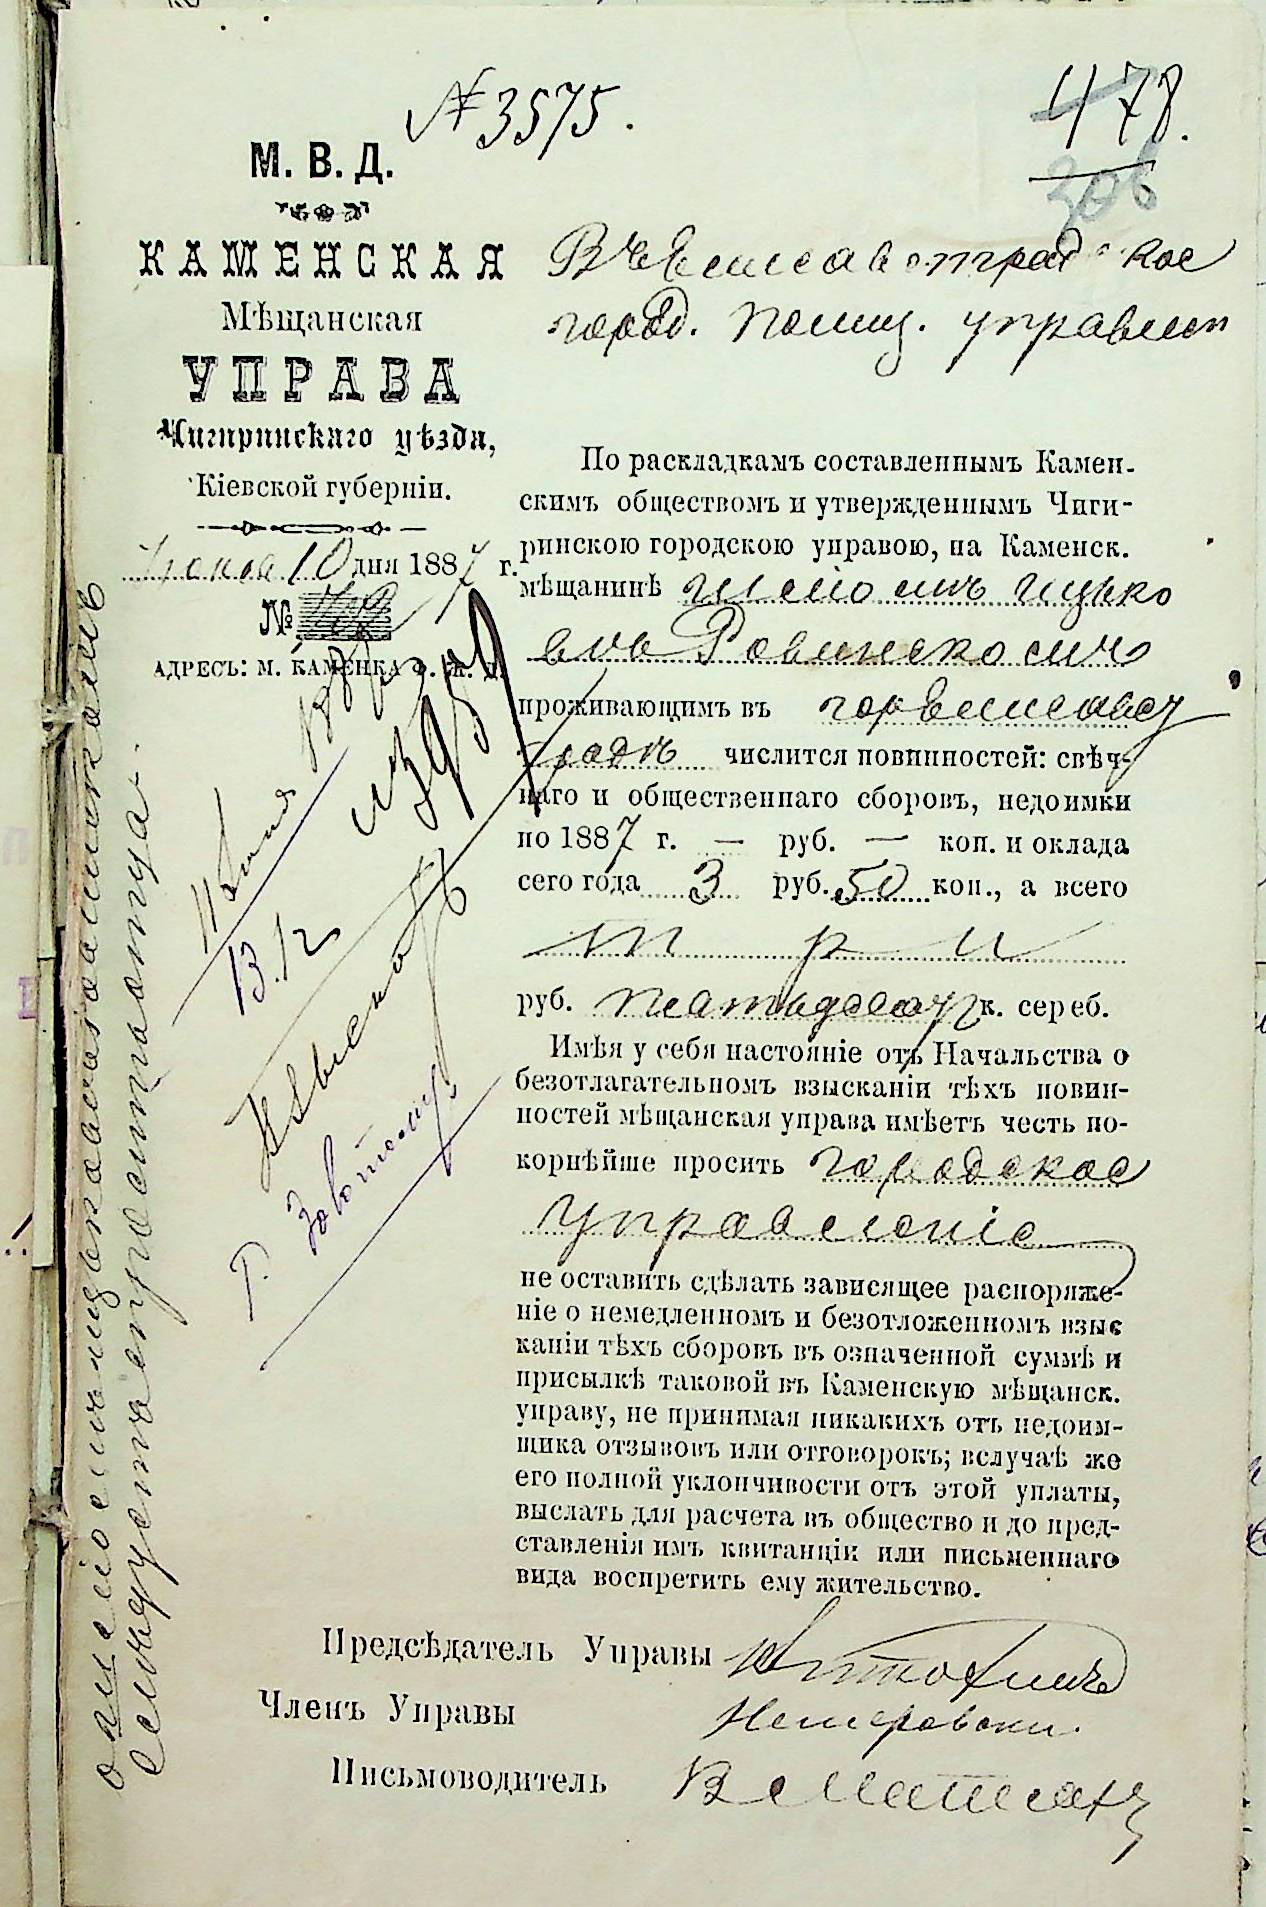 № 3575.
478.
306
М. В. Д.
КАМЕНСКАЯ
Мѣщанская
УПРАВА
Чигиринскаго уѣзда,
Кіевской губерніи.
10 дня 1887 г.
№
АДРЕСЪ: М. КАМЕНКА Ф. Ж. Д.
Въ Елисаветградское
город. полиц. управлен
По раскладкамъ составленнымъ Камен-
скимъ обществомъ и утвержденнымъ Чиги-
ринскою городскою управою, на Каменск.
мѣщанинѣ Шлiомѣ Ицько
вѣ Ровинскомъ
проживающимъ въ гор Елисавет
градѣ числится повинностей: свѣч-
наго и общественнаго сборовъ, недоимки
по 1887 г. — руб. — коп. и оклада
сего года 3 руб. 50 коп., а всего
три
руб. пятьдесят к. сереб.
Имѣя у себя настояніе отъ Начальства о
безотлагательномъ взысканіи тѣхъ повин-
ностей мѣщанская управа имѣетъ честь по-
корнѣйше просить городское
Управленіе
не оставить сдѣлать зависящее распоряже-
ніе о немедленномъ и безотложенномъ взыс
каніи тѣхъ сборовъ въ означенной суммѣ и
присылкѣ таковой въ Каменскую мѣщанск.
управу, не принимая никакихъ отъ недоим-
щика отзывовъ или отговорокъ; вслучаѣ же
его полной уклончивости отъ этой уплаты,
выслать для расчета въ общество и до пред-
ставленія имъ квитанціи или письменнаго
вида воспретить ему жительство.
Предсѣдатель Управы
Членъ Управы
Письмоводитель
11 Іюня
1887
13.12
Г.
о Шліомѣ Ицьковѣ Ровинскомъ